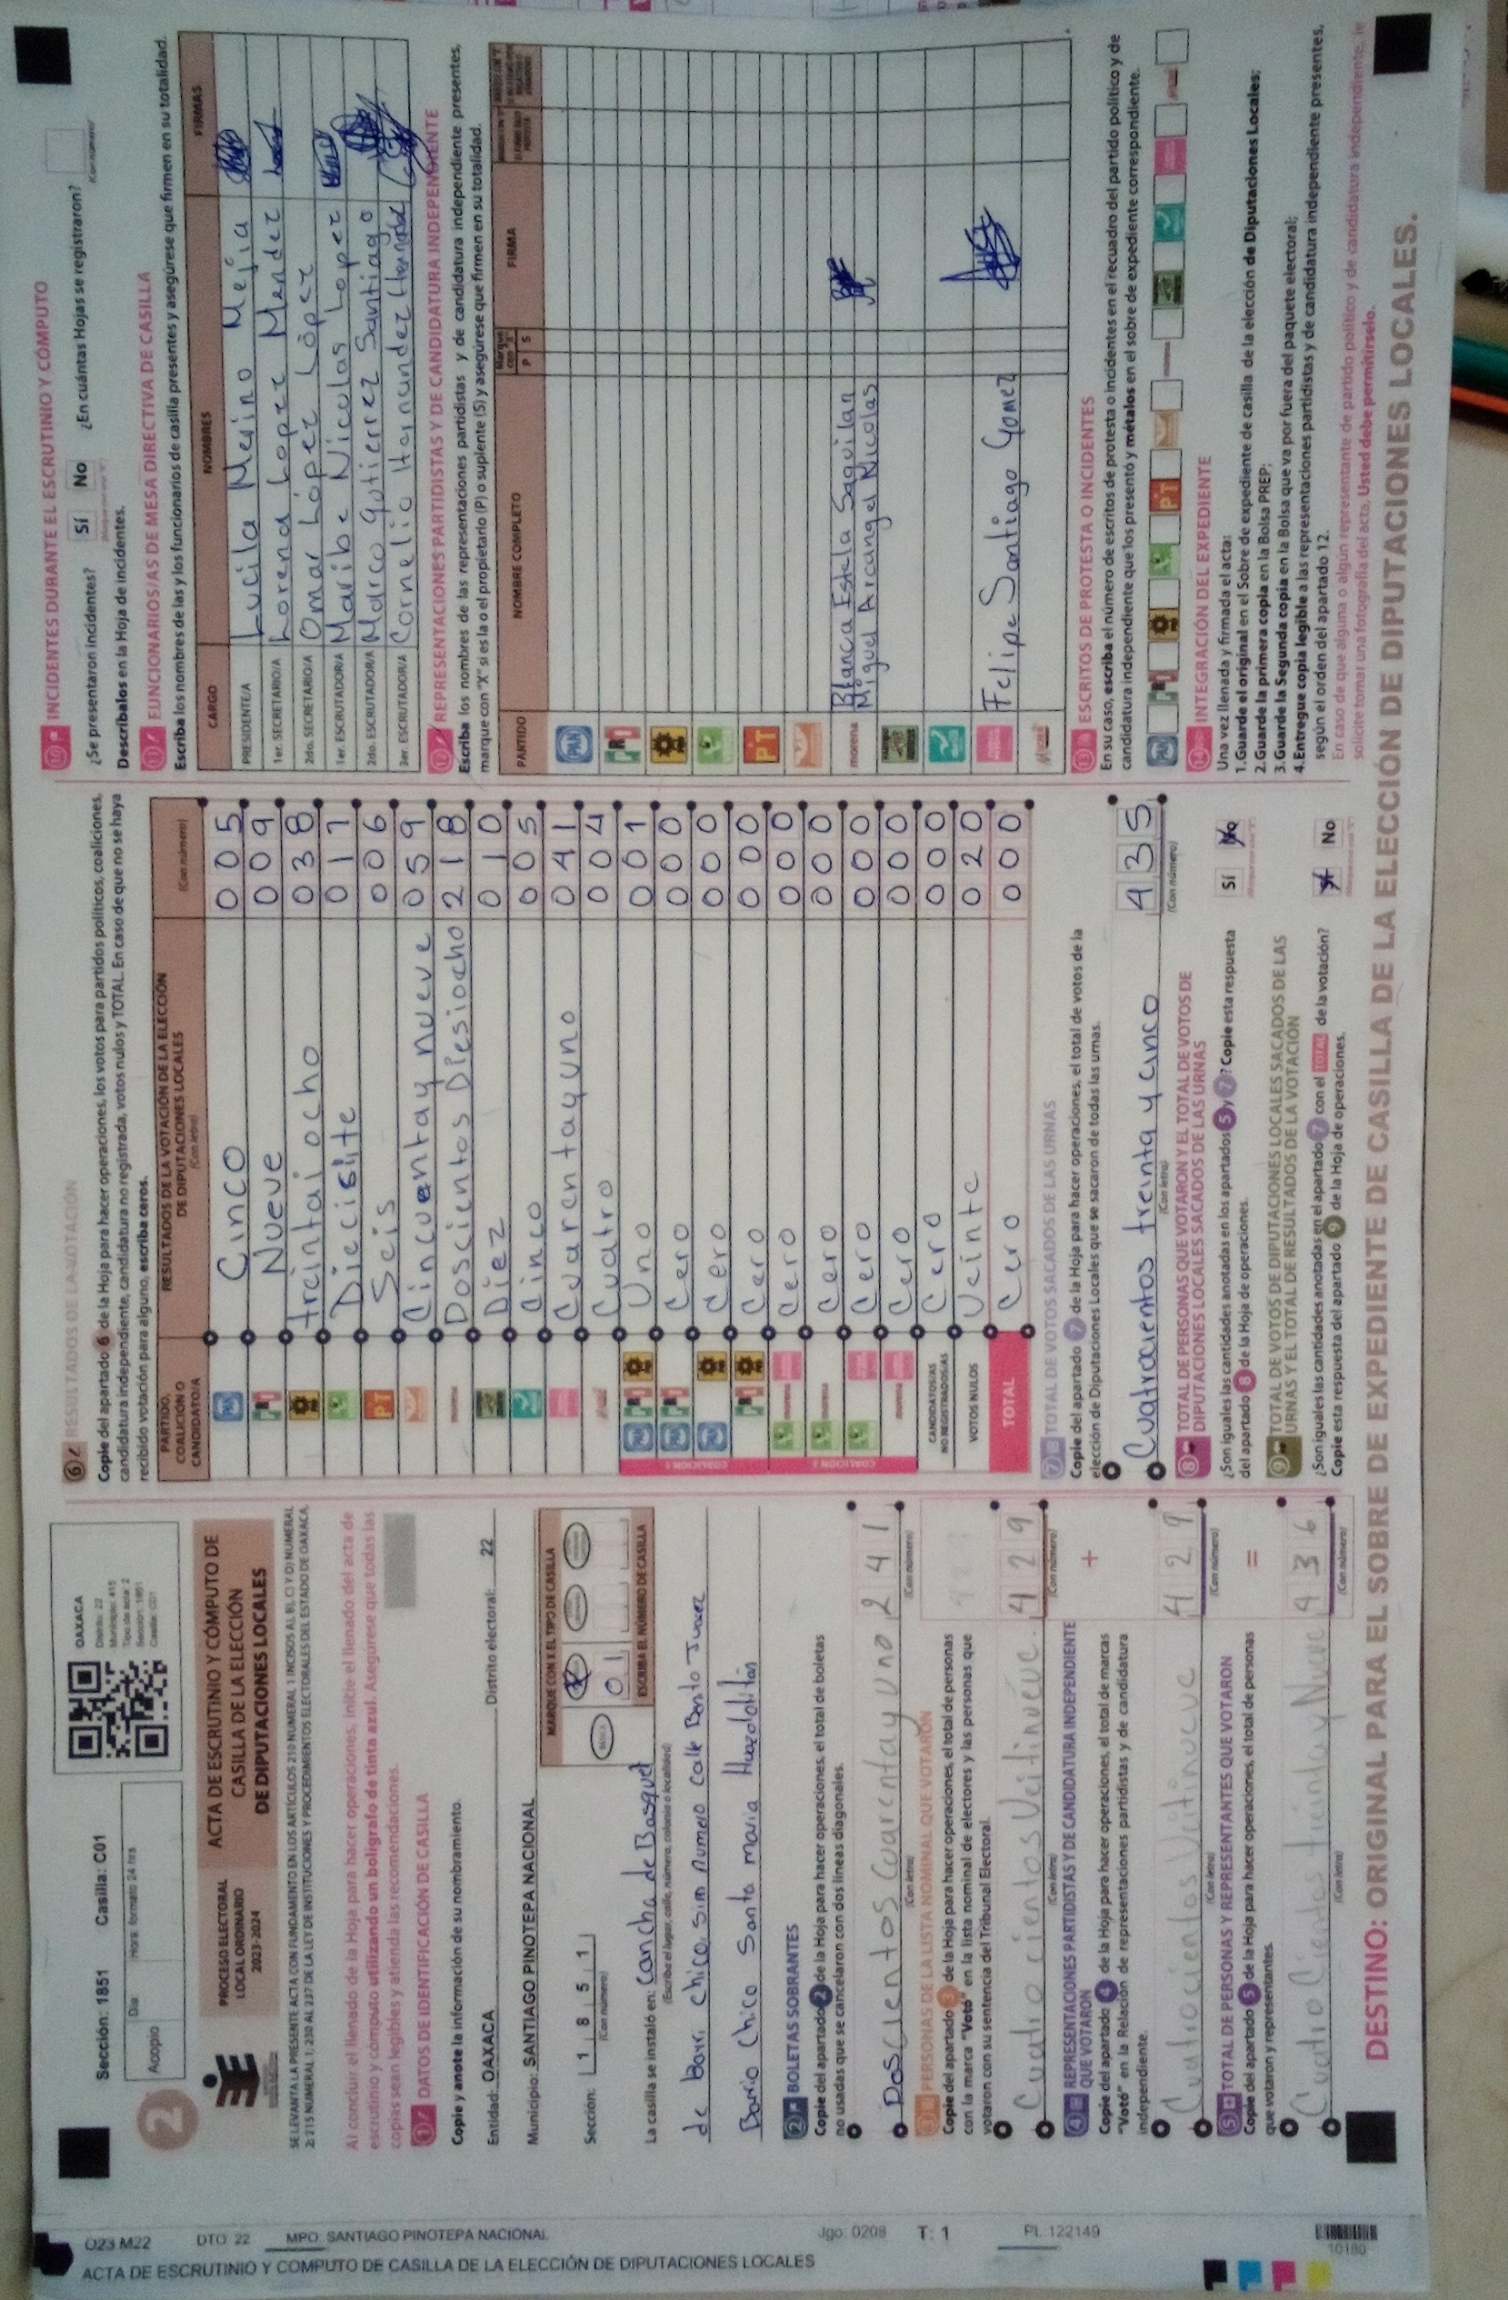 O23 M22 DTO: 22 MPO: SANTIAGO PINOTEPA NACIONAL Jgo: 0208 T: 1 PL: 122149
10180
ACTA DE ESCRUTINIO Y COMPUTO DE CASILLA DE LA ELECCIÓN DE DIPUTACIONES LOCALES
2
Sección: 1851 Casilla: C01
Acopio Día Hora: formato 24 hrs
OAXACA
Distrito: 22
Municipio: 415
Tipo de acta: 2
Sección: 1851
Casilla: C01
PROCESO ELECTORAL
LOCAL ORDINARIO
2023-2024
ACTA DE ESCRUTINIO Y CÓMPUTO DE
CASILLA DE LA ELECCIÓN
DE DIPUTACIONES LOCALES
SE LEVANTA LA PRESENTE ACTA CON FUNDAMENTO EN LOS ARTÍCULOS 210 NUMERAL 1 INCISOS A), B), C) Y D) NUMERAL
2; 215 NUMERAL 1; 230 AL 237 DE LA LEY DE INSTITUCIONES Y PROCEDIMIENTOS ELECTORALES DEL ESTADO DE OAXACA.
Al concluir el llenado de la Hoja para hacer operaciones, inicie el llenado del acta de
escrutinio y cómputo utilizando un bolígrafo de tinta azul. Asegúrese que todas las
copias sean legibles y atienda las recomendaciones.
1 DATOS DE IDENTIFICACIÓN DE CASILLA
Copie y anote la información de su nombramiento.
Entidad: OAXACA Distrito electoral: 22
Municipio: SANTIAGO PINOTEPA NACIONAL
Sección: 1 8 5 1
(Con número)
MARQUE CON X EL TIPO DE CASILLA
BÁSICA
0 1
ESCRIBA EL NÚMERO DE CASILLA
La casilla se instaló en: Cancha de Basquet
(Escriba el lugar, calle, número, colonia o localidad)
de barri chico, sim numero calle Benito Juarez
Barrio Chico Santa maria Huazolotitan
2 BOLETAS SOBRANTES
Copie del apartado 2 de la Hoja para hacer operaciones, el total de boletas
no usadas que se cancelaron con dos líneas diagonales.
Doscientos Cuarenta y uno 2 4 1
(Con letra) (Con número)
3 PERSONAS DE LA LISTA NOMINAL QUE VOTARON
Copie del apartado 3 de la Hoja para hacer operaciones, el total de personas
con la marca "Votó" en la lista nominal de electores y las personas que
votaron con su sentencia del Tribunal Electoral.
Cuatro cientos Veitinueve. 4 2 9
(Con letra) (Con número)
+
4 REPRESENTACIONES PARTIDISTAS Y DE CANDIDATURA INDEPENDIENTE
QUE VOTARON
Copie del apartado 4 de la Hoja para hacer operaciones, el total de marcas
"Votó" en la Relación de representaciones partidistas y de candidatura
independiente.
Cuatrocientos Veitinueve 4 2 9
(Con letra) (Con número)
=
5 TOTAL DE PERSONAS Y REPRESENTANTES QUE VOTARON
Copie del apartado 5 de la Hoja para hacer operaciones, el total de personas
que votaron y representantes.
Cuatro Cientos treinta y Nueve 4 3 6
(Con letra) (Con número)
6 RESULTADOS DE LA VOTACIÓN
Copie del apartado 6 de la Hoja para hacer operaciones, los votos para partidos políticos, coaliciones,
candidatura independiente, candidatura no registrada, votos nulos y TOTAL. En caso de que no se haya
recibido votación para alguno, escriba ceros.
PARTIDO, COALICIÓN O CANDIDATO/A
RESULTADOS DE LA VOTACIÓN DE LA ELECCIÓN DE DIPUTACIONES LOCALES
(Con letra) (Con número)
PAN Cinco 005
PRI Nueve 009
treintai ocho 038
Diecisiite 017
PT Seis 006
Cincuenta y nueve 059
morena Doscientos Diesiocho 218
Diez 010
Cinco 005
Cuarenta y uno 041
Cuatro 004
PAN PRI Uno 001
PAN PRI Cero 000
PAN Cero 000
PRI Cero 000
morena Cero 000
morena Cero 000
Cero 000
morena Cero 000
CANDIDATOS/AS NO REGISTRADOS/AS Cero 000
VOTOS NULOS Veinte 020
TOTAL Cero 000
COALICIÓN
COALICIÓN
7 TOTAL DE VOTOS SACADOS DE LAS URNAS
Copie del apartado 7 de la Hoja para hacer operaciones, el total de votos de la
elección de Diputaciones Locales que se sacaron de todas las urnas.
Cuatrocientos treinta y cinco 4 3 5
(Con letra) (Con número)
8 TOTAL DE PERSONAS QUE VOTARON Y EL TOTAL DE VOTOS DE
DIPUTACIONES LOCALES SACADOS DE LAS URNAS
¿Son iguales las cantidades anotadas en los apartados 5 y 7? Copie esta respuesta
del apartado 8 de la Hoja de operaciones.
Sí No
9 TOTAL DE VOTOS DE DIPUTACIONES LOCALES SACADOS DE LAS
URNAS Y EL TOTAL DE RESULTADOS DE LA VOTACIÓN
¿Son iguales las cantidades anotadas en el apartado 7 con el TOTAL de la votación?
Copie esta respuesta del apartado 9 de la Hoja de operaciones.
Sí No
10 INCIDENTES DURANTE EL ESCRUTINIO Y CÓMPUTO
¿Se presentaron incidentes? Sí No ¿En cuántas Hojas se registraron?
(Con número)
Descríbalos en la Hoja de incidentes.
11 FUNCIONARIOS/AS DE MESA DIRECTIVA DE CASILLA
Escriba los nombres de las y los funcionarios de casilla presentes y asegúrese que firmen en su totalidad.
CARGO NOMBRES FIRMAS
PRESIDENTE/A Lucila Merino Mejia
1er. SECRETARIO/A Lorena Lopez Mendez
2do. SECRETARIO/A Omar López López
1er. ESCRUTADOR/A Maribe Nicolas Lopez
2do. ESCRUTADOR/A Marco Gutierrez Santiago
3er. ESCRUTADOR/A Cornelio Hernandez Hernández
12 REPRESENTACIONES PARTIDISTAS Y DE CANDIDATURA INDEPENDIENTE
Escriba los nombres de las representaciones partidistas y de candidatura independiente presentes,
marque con "X" si es la o el propietario (P) o suplente (S) y asegúrese que firmen en su totalidad.
PARTIDO NOMBRE COMPLETO Marque con X P S FIRMA
PAN
PRI
PT
morena Blanca Estela Saguilan
Miguel Arcangel Nicolas
Felipe Santiago Gomez
13 ESCRITOS DE PROTESTA O INCIDENTES
En su caso, escriba el número de escritos de protesta o incidentes en el recuadro del partido político y de
candidatura independiente que los presentó y métalos en el sobre de expediente correspondiente.
PAN PRI PT morena
14 INTEGRACIÓN DEL EXPEDIENTE
Una vez llenada y firmada el acta:
1. Guarde el original en el Sobre de expediente de casilla de la elección de Diputaciones Locales;
2. Guarde la primera copia en la Bolsa PREP;
3. Guarde la Segunda copia en la Bolsa que va por fuera del paquete electoral;
4. Entregue copia legible a las representaciones partidistas y de candidatura independiente presentes,
según el orden del apartado 12.
En caso de que alguna o algún representante de partido político y de candidatura independiente, le
solicite tomar una fotografía del acta, Usted debe permitírselo.
DESTINO: ORIGINAL PARA EL SOBRE DE EXPEDIENTE DE CASILLA DE LA ELECCIÓN DE DIPUTACIONES LOCALES.